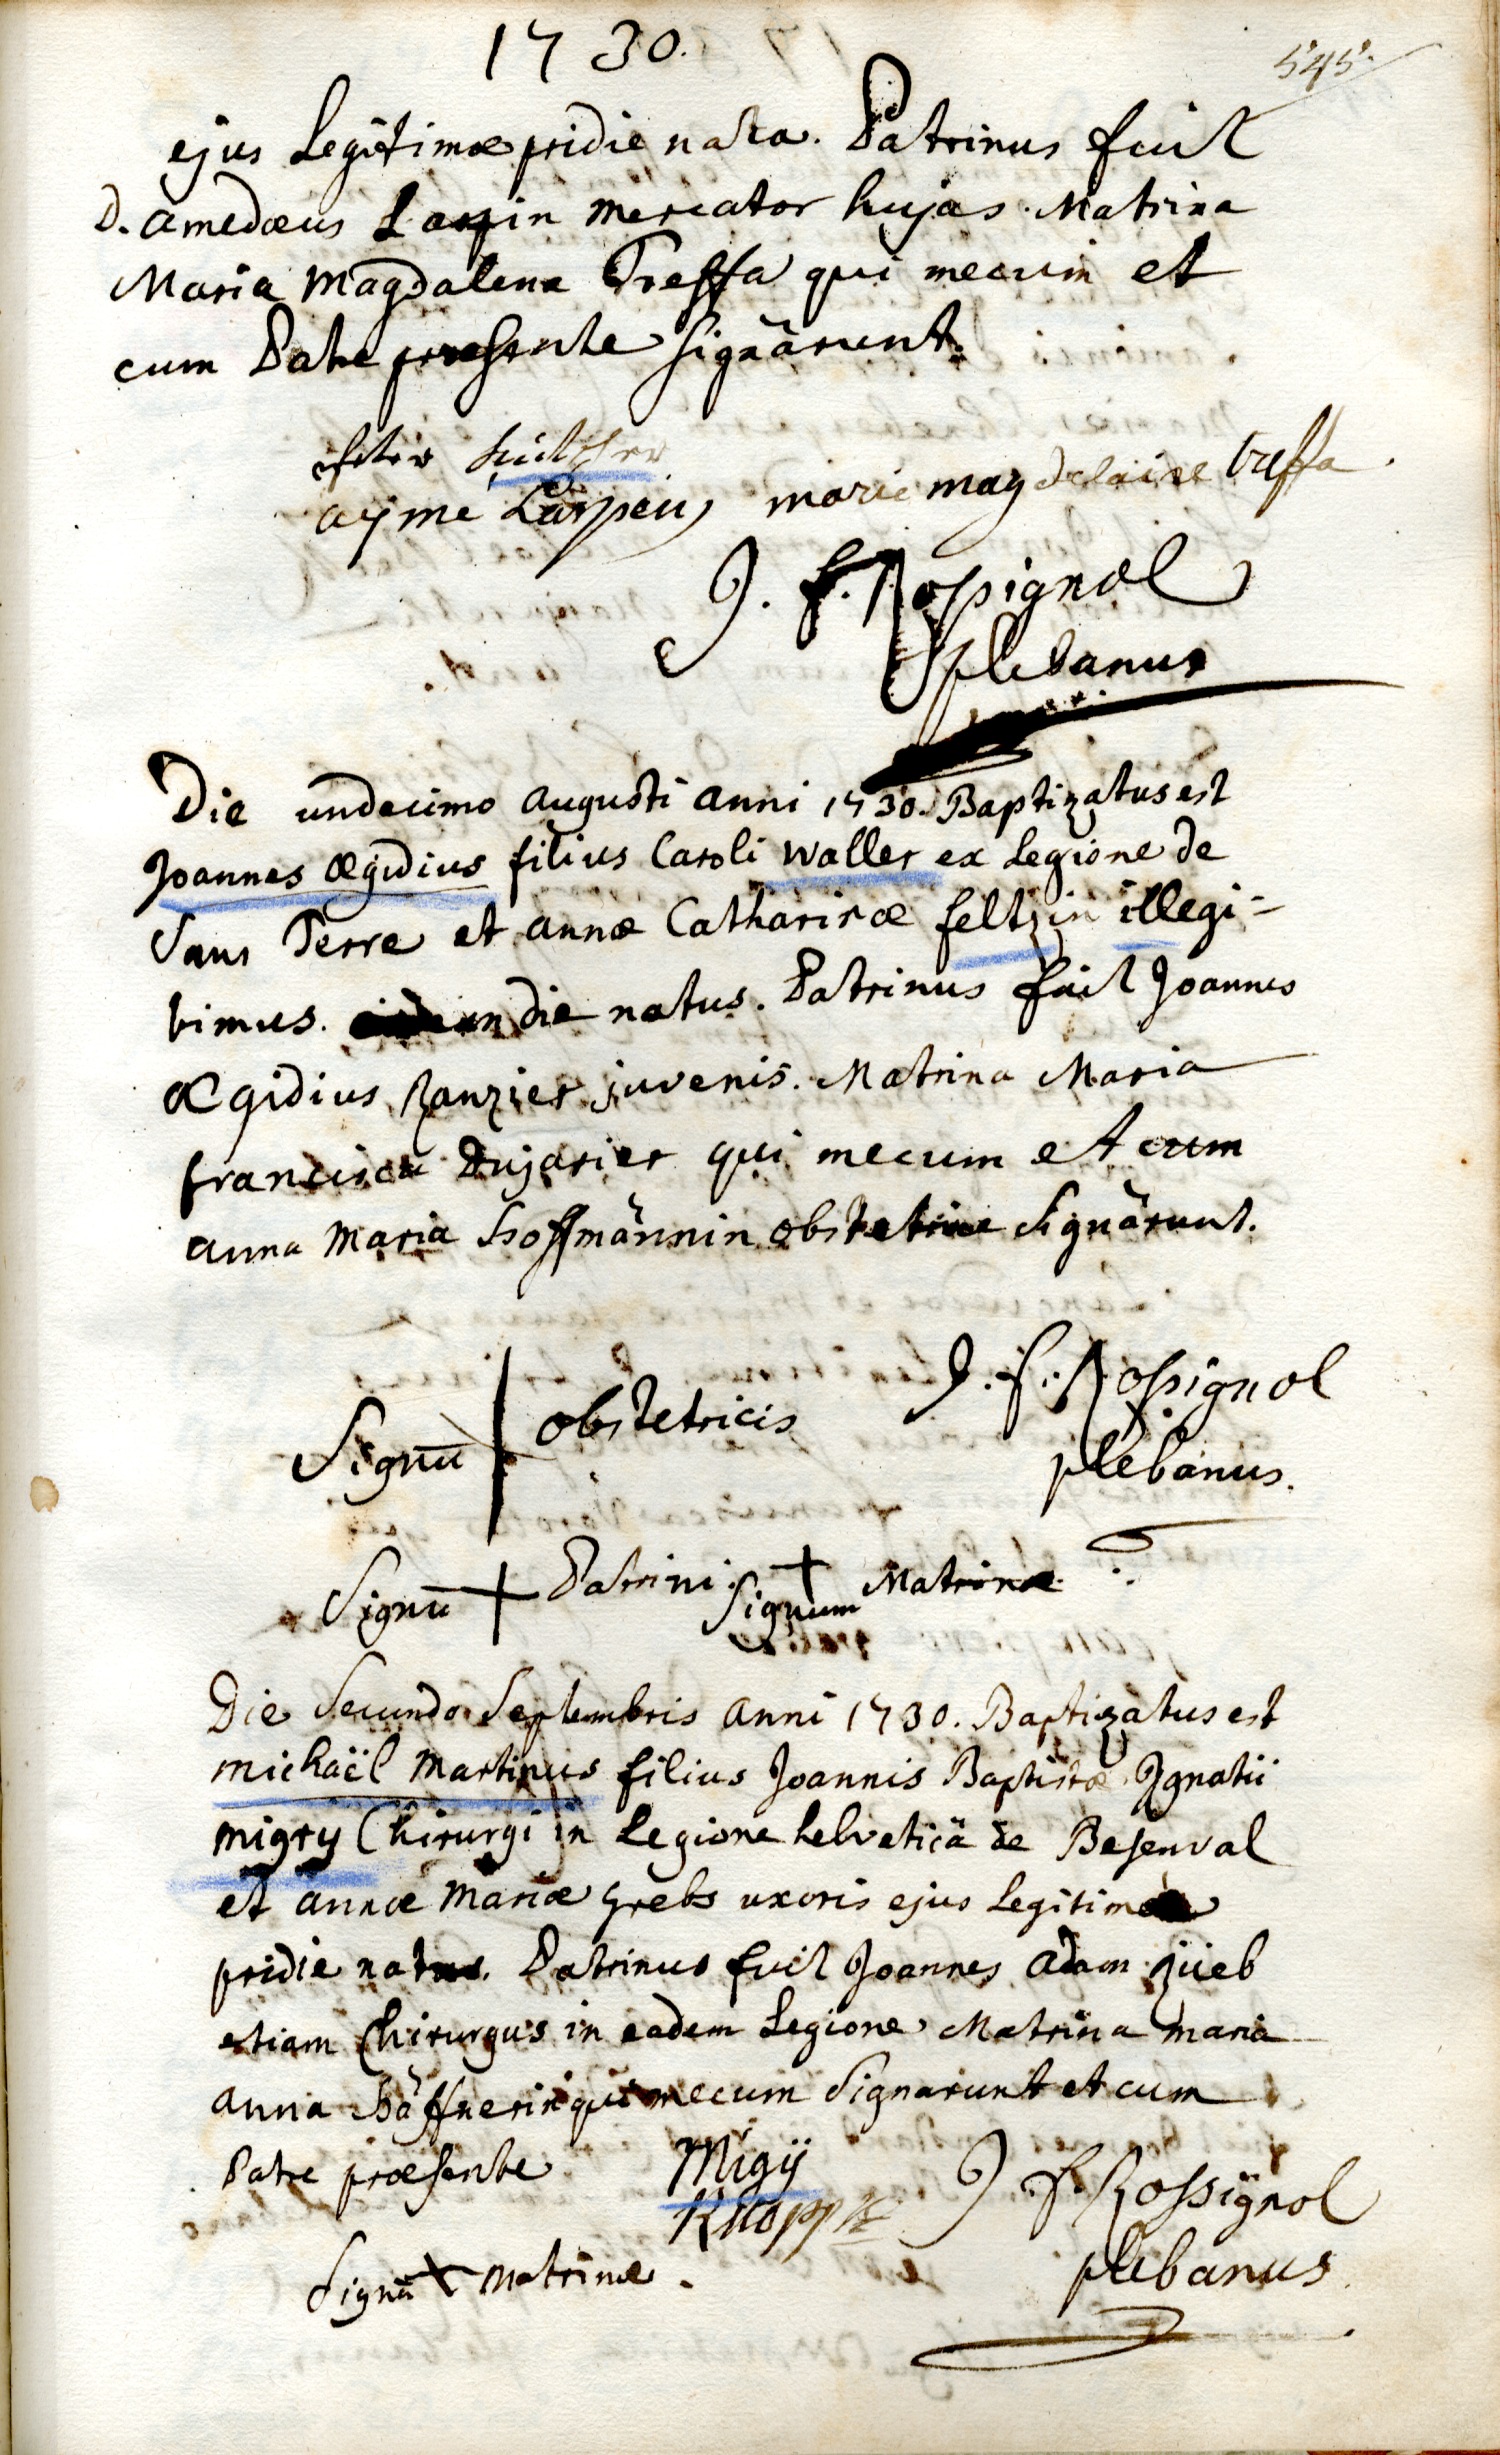 1730.
545.
ejus Legitimæ pridie nata. Patrinus fuit
D. amedæus Larpin mercator hujas. Matrina
Maria Magdalena Treffa qui mecum et
cum Patre præsente signârunt.
ayme Larpein marie magdelaine treffa
J. f. Rossignol
plebanus
Die undecimo augusti anni 1730. Baptizatus est
Joannes Ægidius filius Caroli Waller ex Legione de
Sans Terre et annæ Catharinæ feltzin illegi-
timus. eadem die natus. Patrinus fuit Joannes
Ægidius Ranzier juvenis. Matrina Maria
francisca Dujarier qui mecum et cum
anna Maria Hoffmännin obstetrice signârunt.
Signū obstetricis
J. f. Rossignol
plebanus.
Signū + Patrini. Signum + Matrinæ
Die Secundo Septembris anni 1730. Baptizatus est
michaël Martinus filius Joannis Baptistæ Ignatii
migry Chirurgi in Legione helveticâ de Besenval
et annæ Mariæ Grebs uxoris ejus Legitimæ
pridie natus. Patrinus fuit Joannes adam
etiam Chirurgus in eadem Legione Matrina maria
anna Häffnerin qui mecum Signarunt et cum
Patre præsente
Migÿ
J. f. Rossignol
plebanus
Signū + matrinæ.